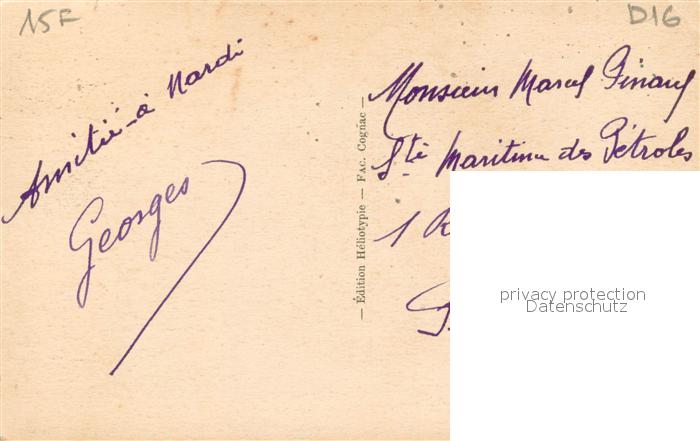 15F
D16
Amitié - à Mardi
Georges
— Édition Héliotypie — FAC. Cognac —
Monsieur Marcel
Sté Maritime des Pétroles
1 R
privacy protection
Datenschutz